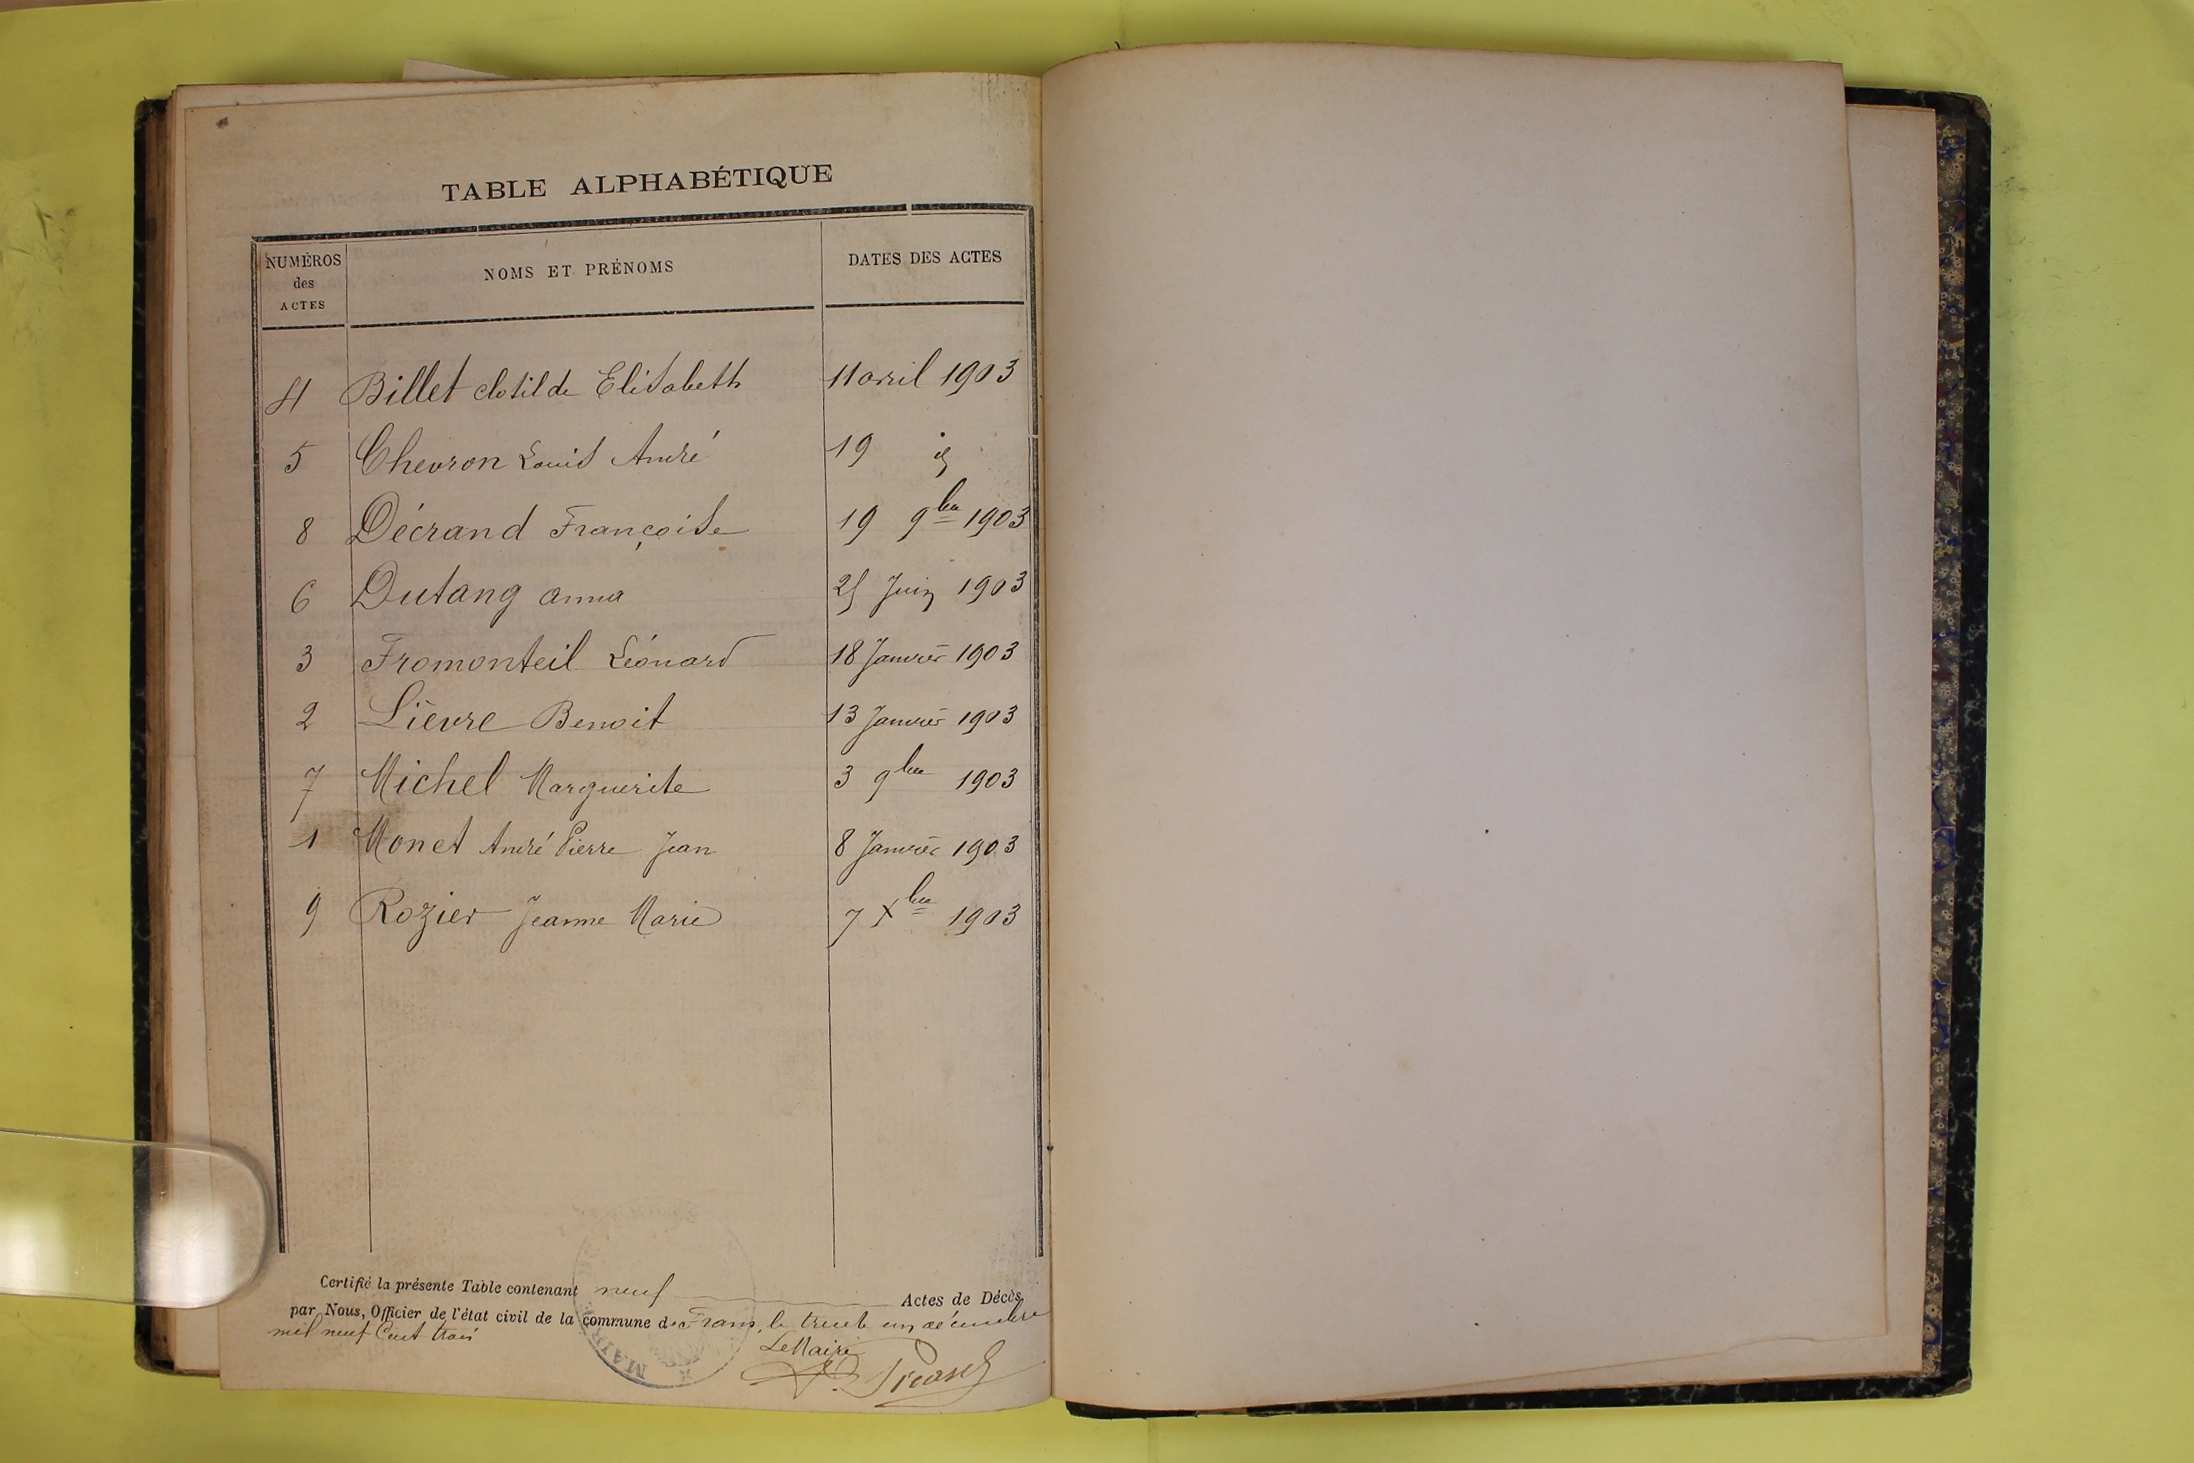 TABLE ALPHABÉTIQUE
NUMÉROS des ACTES NOMS ET PRÉNOMS DATES DES ACTES
4 Billet Clotilde Elisabeth 11 avril 1903
5 Chevron Louis André 19 id
8 Décrand Françoise 19 9bre 1903
6 Dutang Anna 25 Juin 1903
3 Fromonteil Léonard 18 Janvier 1903
2 Lièvre Benoit 13 Janvier 1903
7 Michel Marguerite 3 9bre 1903
1 Monet André Pierre Jean 8 Janvier 1903
9 Rozier Jeanne Marie 7 Xbre 1903
Certifié la présente Table contenant neuf Actes de Décès
par Nous, Officier de l'état civil de la commune de Frans, le trente un décembre
mil neuf Cent trois
Le Maire
MAIR